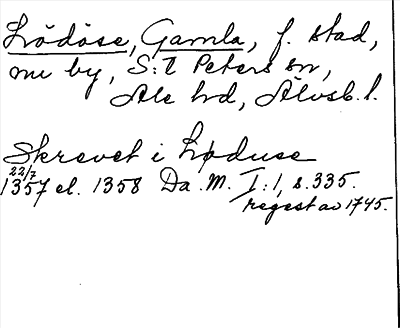 Lödöse, Gamla, f. stad,
nu by, S:t Peters sn,
Ale hd, Älvsb. l.
Skrevet i Løduse
22/7
1357 el. 1358 Da. M. I:1, s. 335.
regest av 1745.